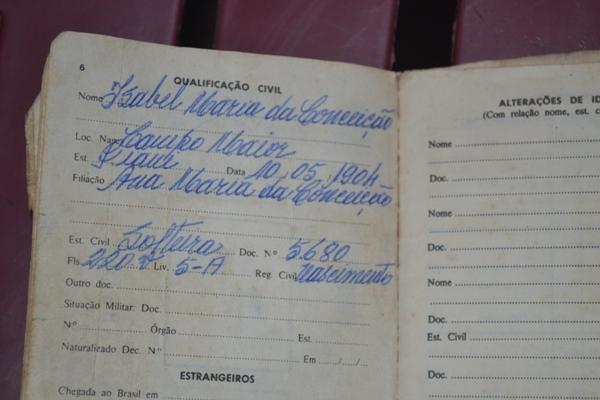 6
QUALIFICAÇÃO CIVIL
Nome Izabel Maria da Conceição
Loc. Nasc. Campo Maior
Est. Piaui Data 10 05 1904
Filiação Ana Maria da Conceição
Est. Civil Solteira Doc. Nº 5.680
Fls. 220 v Liv. 5-A Reg. Civil nascimento
Outro doc.
Situação Militar: Doc.
Nº Órgão Est.
Naturalizado Dec. Nº Em / /
ESTRANGEIROS
Chegada ao Brasil em
ALTERAÇÕES DE ID
(Com relação nome, est. c
Nome
Doc.
Nome
Doc.
Nome
Doc.
Est. Civil
Doc.